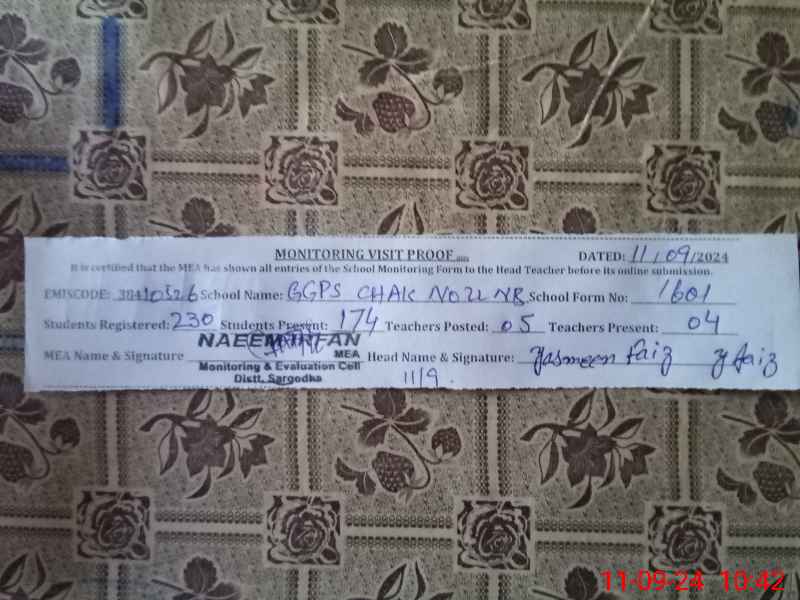 MONITORING VISIT PROOF DATED: 11/09/2024
It is certified that the MEA has shown all entries of the School Monitoring Form to the Head Teacher before its online submission.
EMISCODE: 38410326 School Name: GGPS CHAK NO 22 NB School Form No: 1601
Students Registered: 230 Students Present: 174 Teachers Posted: 05 Teachers Present: 04
NAEEM IRFAN
MEA
MEA Name & Signature Head Name & Signature: Yasmeen faiz y faiz
Monitoring & Evaluation Cell
Distt. Sargodha 11/9.
11-09-24 10:42